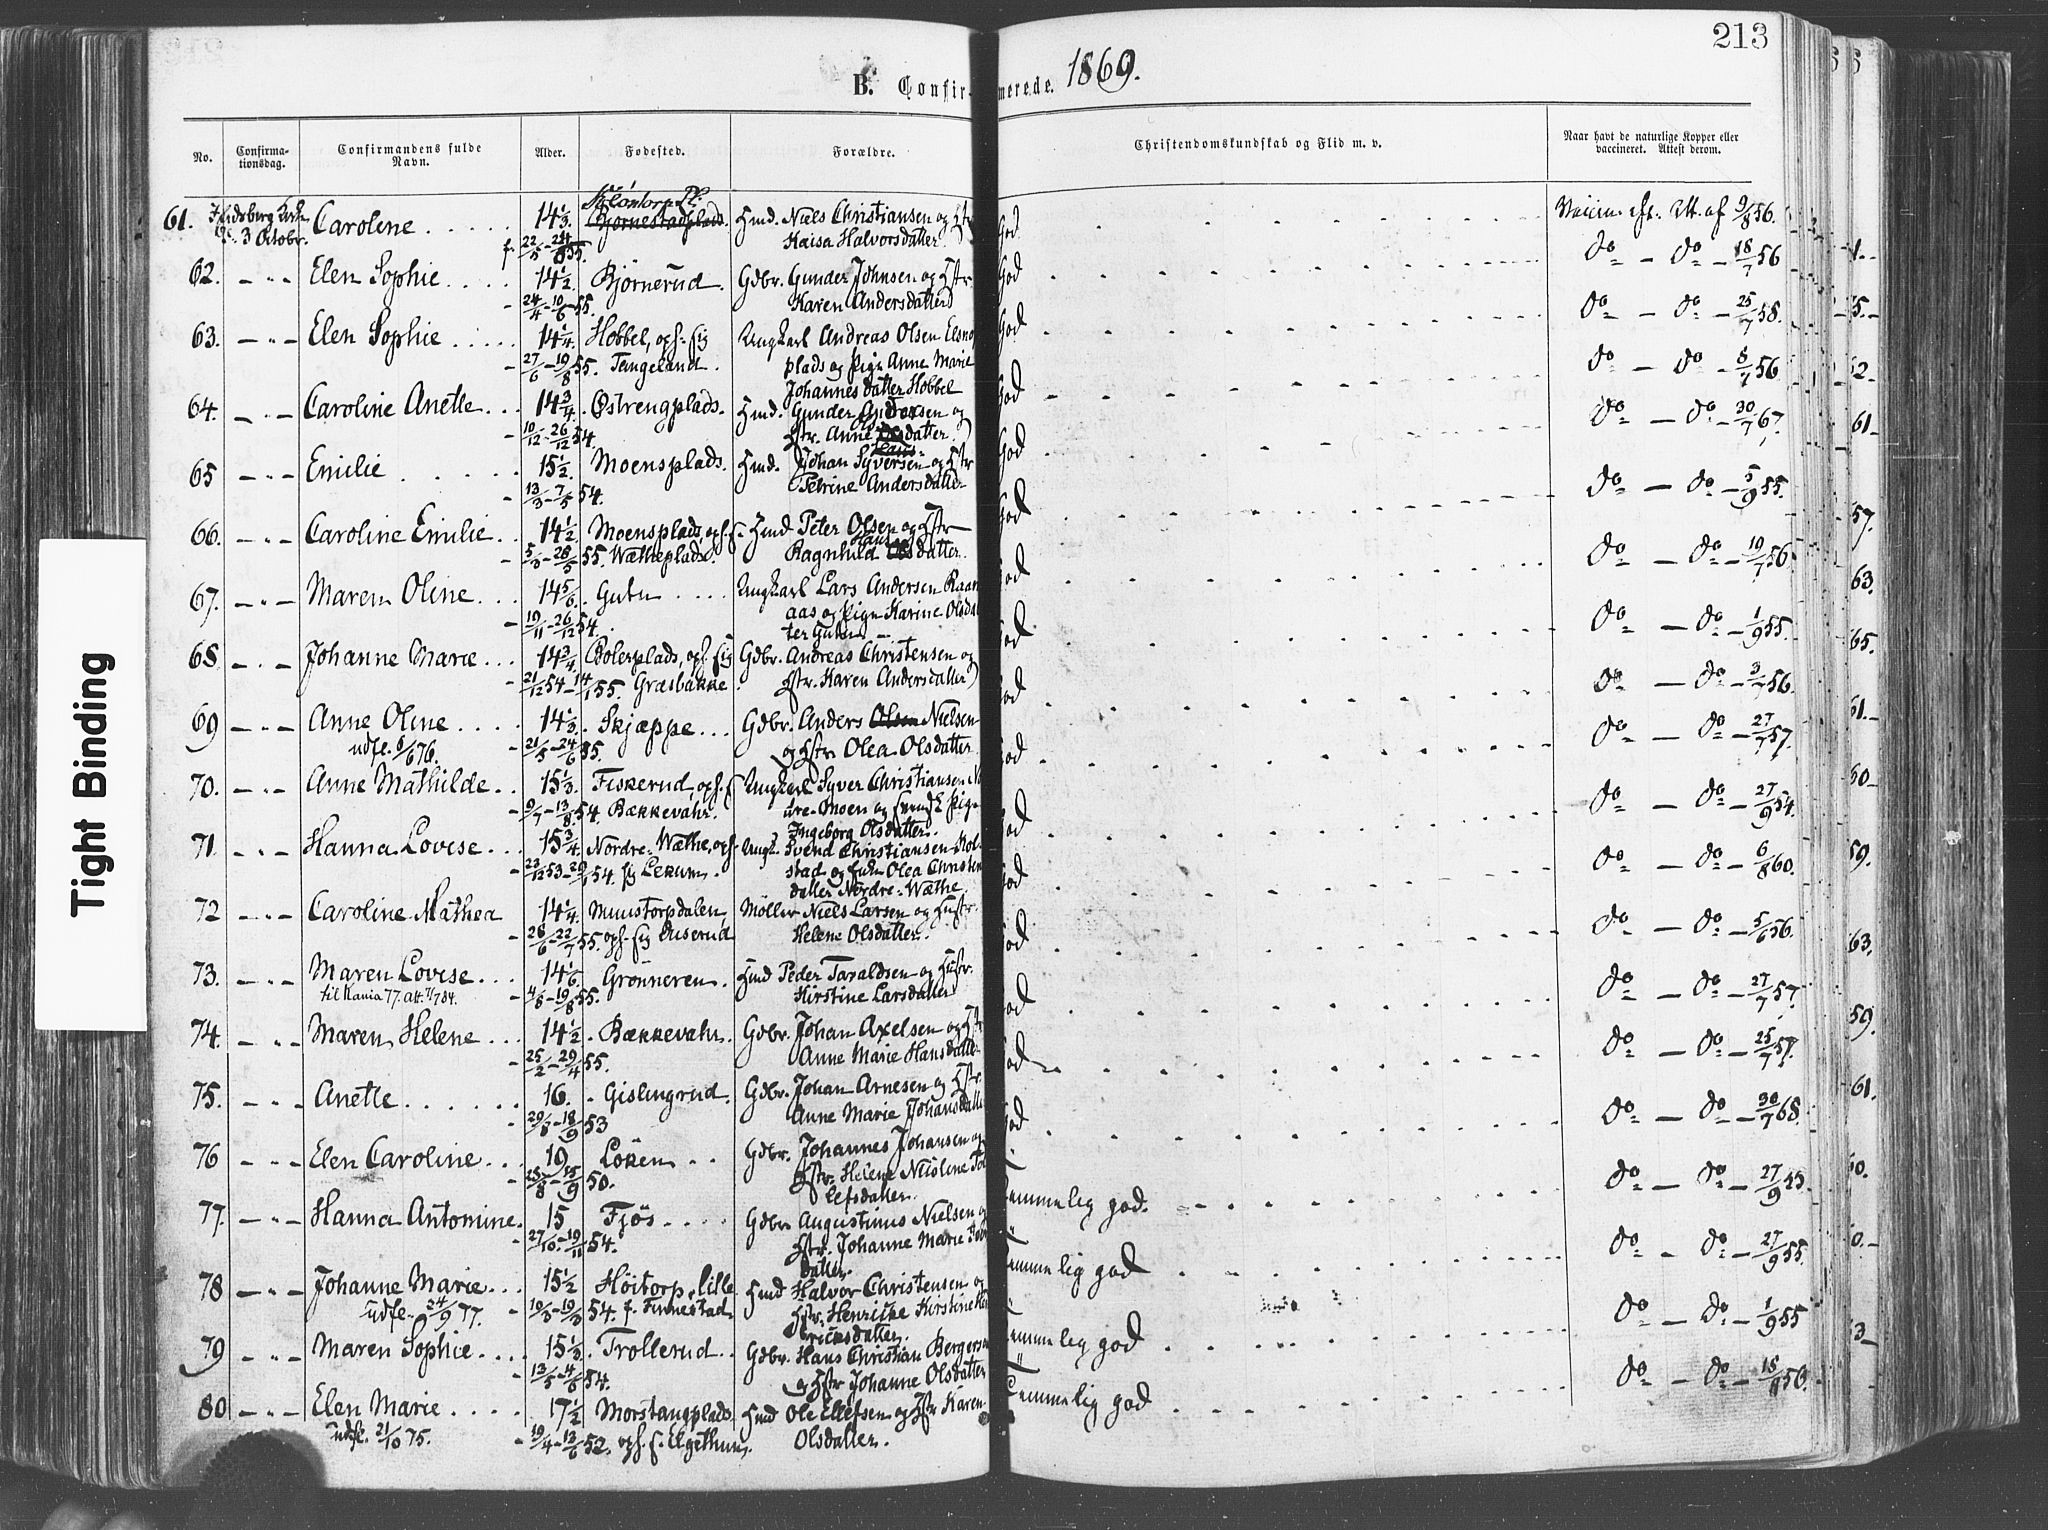 213
B. Confirmerede. 1869.
No. Confirmationsdag. Confirmandens fulde Navn. Alder. Fødested. Forældre. Christendomskundskab og Flid m. v. Naar havt de naturlige Kopper eller vaccineret. Attest derom.
61. 3 Octobr. Carolene 14 1/3 Bjørnestadplads Hmd. Niels Christiansen og Hstr God 9/8 56.
f. 22/5 - 55. Kaisa Halvorsdatter
62. - " - Elen Sophie 14 1/2 Bjørnerud Gdbr. Gunder Johnsen og Hstr. God do - do - 18/7 56
24/4 - 10/6 55. Karen Andersdatter
63. - " - Elen Sophie 14 1/4 Hobbel, oph. fig Ungkarl Andreas Olsen God do - do - 25/7 58.
27/6 - 19/8 55. Tangeland. plads og Pige Anne Marie
Johannesdatter Hobbel
64. - " - Caroline Anette 14 3/4 Østrengplads. Hmd. Gunder Andersen og God do - do - 8/7 56
10/12 - 26/12 54. Hstr. Anne Olsdatter.
65 - " - Emilie 15 1/2 Moensplads. Hmd. Johan Syversen og Hstr God do - do - 30/7 67,
13/3 - 7/5 54. Petrine Andersdatter
66. - " - Caroline Emilie 14 1/2 Moensplads, oph. f. Hmd Peter Olsen og Hstr God do - do - 5/9 55.
5/3 - 28/5 55. Wætheplads. Ragnhild Hansdatter.
67. - " - Maren Oline 14 5/6 Gutu Ungkarl Lars Andersen God do - do - 19/7 56
19/11 - 26/12 54. aas og Pige Karine Olsdat
ter Gutu
68. - " - Johanne Marie 14 3/4 Bolerplads, oph. fig Gdbr. Andreas Christensen og God do - do - 1/9 55.
21/12 54 - 14/1 55. Græsbakke Hstr. Karen Andersdatter
69 - " - Anne Oline 14 1/3 Skjæppe Gdbr. Anders Olsen Nielsen God do - do - 3/7 56.
udfl. 6/6 76. 21/5 - 24/6 55 og Hstr Olea Olsdatter
70. - " - Anne Mathilde 15 1/3 Fiskerud, oph. f Ungkarl Syver Christiansen God do - do - 27/7 57.
9/7 - 13/8 54. Bækkevahr. Moen og Pige
Ingeborg Olsdatter.
71 - " - Hanna Lovise 15 3/4 Nordre Wæthe, oph. Ungk. Svend Christiansen Kol- God do - do - 27/9 54.
23/12 53 - 29/1 54. fig Lekum. stad og Enke Olea Christens
datter Nordre-Wæthe.
72 - " - Caroline Mathea 14 1/4 Munstorpdalen, Møller Niels Larsen og Hustr. God do - do - 6/8 60.
28/6 - 22/7 55. oph. fig Duserud Helene Olsdatter.
73. - " - Maren Lovise 14 1/6 Grønneren Hmd Peder Taraldsen og Hustr. God do - do - 5/6 56.
til Rania 77. att. 7/7 84. 4/8 - 19/8 55. Kirstine Larsdatter
74. - " - Maren Helene 14 1/2 Bækkevahr Gdbr. Johan Axelsen og Hstr God do - do - 27/7 57.
25/2 - 29/4 55. Anne Marie Hansdatter
75. - " - Anette 16. Gislingrud Gdbr. Johan Arnesen og Hstr. God do - do - 25/7 57.
29/8 - 18/9 53 Anne Marie Johansdatter
76 - " - Elen Caroline 19 Löken Gdbr. Johannes Johansen og do - do - 30/7 68.
25/8 - 15/9 50. Hstr. Helene Nicoline Tol
lefsdatter.
77. - " - Hanna Antomine. 15 Fjös Gdbr. Augustinus Nielsen og Temmelig god. do - do - 27/9 55.
27/10 - 19/11 54. Hstr. Johanne Marie
datter.
78 - " - Johanne Marie 15 1/2 Höitorp, Lille Hmd Halvor Christensen og Temmelig god do - do - 27/9 55.
udfl. 24/9 77. 19/3 - 54. f. Finnestad Hstr. Henrikke Kirstine Hen
riksdatter.
79 - " - Maren Sophie 15 1/3 Trollerud Gdbr. Hans Christian Bergersen Temmelig god do - do - 1/9 55
13/5 - 4/6 54. og Hstr Johanne Olsdatter
80 - " - Elen Marie 17 1/2 Morstangplads Hmd Ole Ellefsen og Hstr Karen Temmelig god do - do - 18/8 56.
udfl. 21/10 75. 19/4 - 13/6 52. oph. f. Elgethun. Olsdatter.
Tight Binding